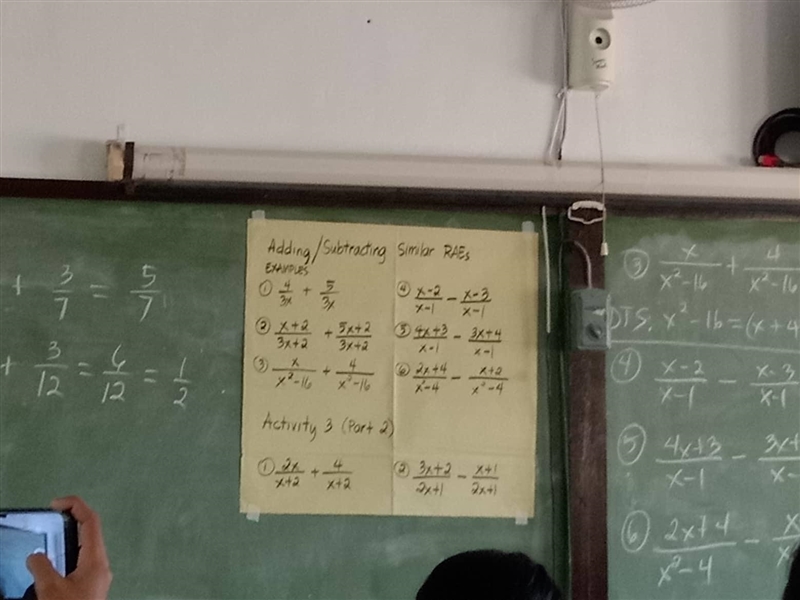 + 3/7 = 5/7
+ 3/12 = 6/12 = 1/2
Adding/Subtracting Similar RAEs
EXAMPLES
① 4/3x + 5/3x
② x+2/3x+2 + 5x+2/3x+2
③ x/x²-16 + 4/x²-16
④ x-2/x-1 - x-3/x-1
⑤ 4x+3/x-1 - 3x+4/x-1
⑥ 2x+4/x²-4 - x+2/x²-4
Activity 3 (Part 2)
① 2x/x+2 + 4/x+2
② 3x+2/2x+1 - x+1/2x+1
③ x/x²-16 + 4/x²-16
DTS: x²-16 = (x+4
④ x-2/x-1 - x-3/x-1
⑤ 4x+3/x-1 - 3x+/x-
⑥ 2x+4/x²-4 - x/x